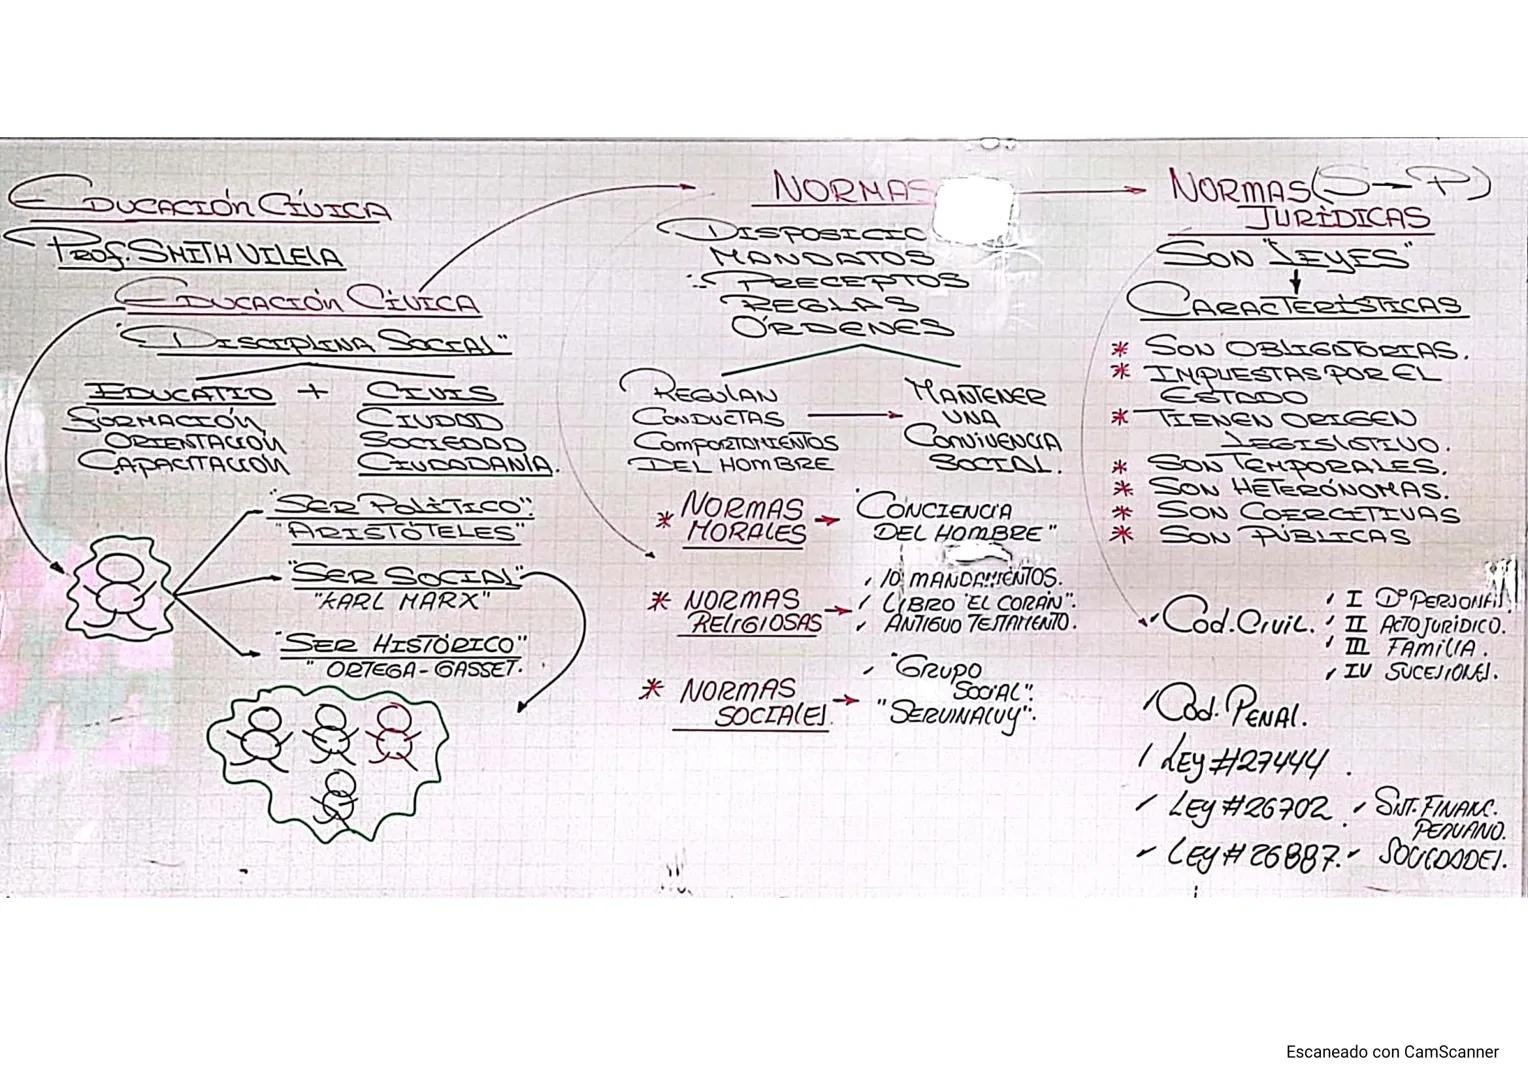 EDUCACIÓN CÍVICA
PROF. SMITH VILELA
EDUCACIÓN CÍVICA
"DISCIPLINA SOCIAL"
EDUCATIO + CIVIS
FORMACIÓN
ORIENTACIÓN
CAPACITACIÓN
CIUDAD
SOCIEDAD
CIUDADANÍA.
"SER POLÍTICO".
"ARISTÓTELES"
"SER SOCIAL"
"KARL MARX"
"SER HISTÓRICO"
"ORTEGA-GASSET.
NORMAS
DISPOSICIO
MANDATOS
PRECEPTOS
REGLAS
ÓRDENES
REGULAN
CONDUCTAS
COMPORTAMIENTOS
DEL HOMBRE
MANTENER
UNA
CONVIVENCIA
SOCIAL.
* NORMAS
MORALES
"CONCIENCIA
DEL HOMBRE"
* NORMAS
RELIGIOSAS
10 MANDAMIENTOS.
LIBRO "EL CORÁN".
ANTIGUO TESTAMENTO.
* NORMAS
SOCIALES.
"GRUPO
SOCIAL".
"SERVINACUY".
NORMAS (S-P)
JURÍDICAS
SON "LEYES"
CARACTERÍSTICAS
* SON OBLIGATORIAS.
* IMPUESTAS POR EL
ESTADO
* TIENEN ORIGEN
LEGISLATIVO.
* SON TEMPORALES.
* SON HETERÓNOMAS.
* SON COERCITIVAS
* SON PÚBLICAS
Cod. Civil.
I Dº PERSONAS
II ACTO JURÍDICO.
III FAMILIA.
IV SUCESIONES.
Cod. PENAL.
LEY #27444.
LEY #26702
SIST. FINANC.
PERUANO.
LEY #26887.
SOCIEDADES.
Escaneado con CamScanner